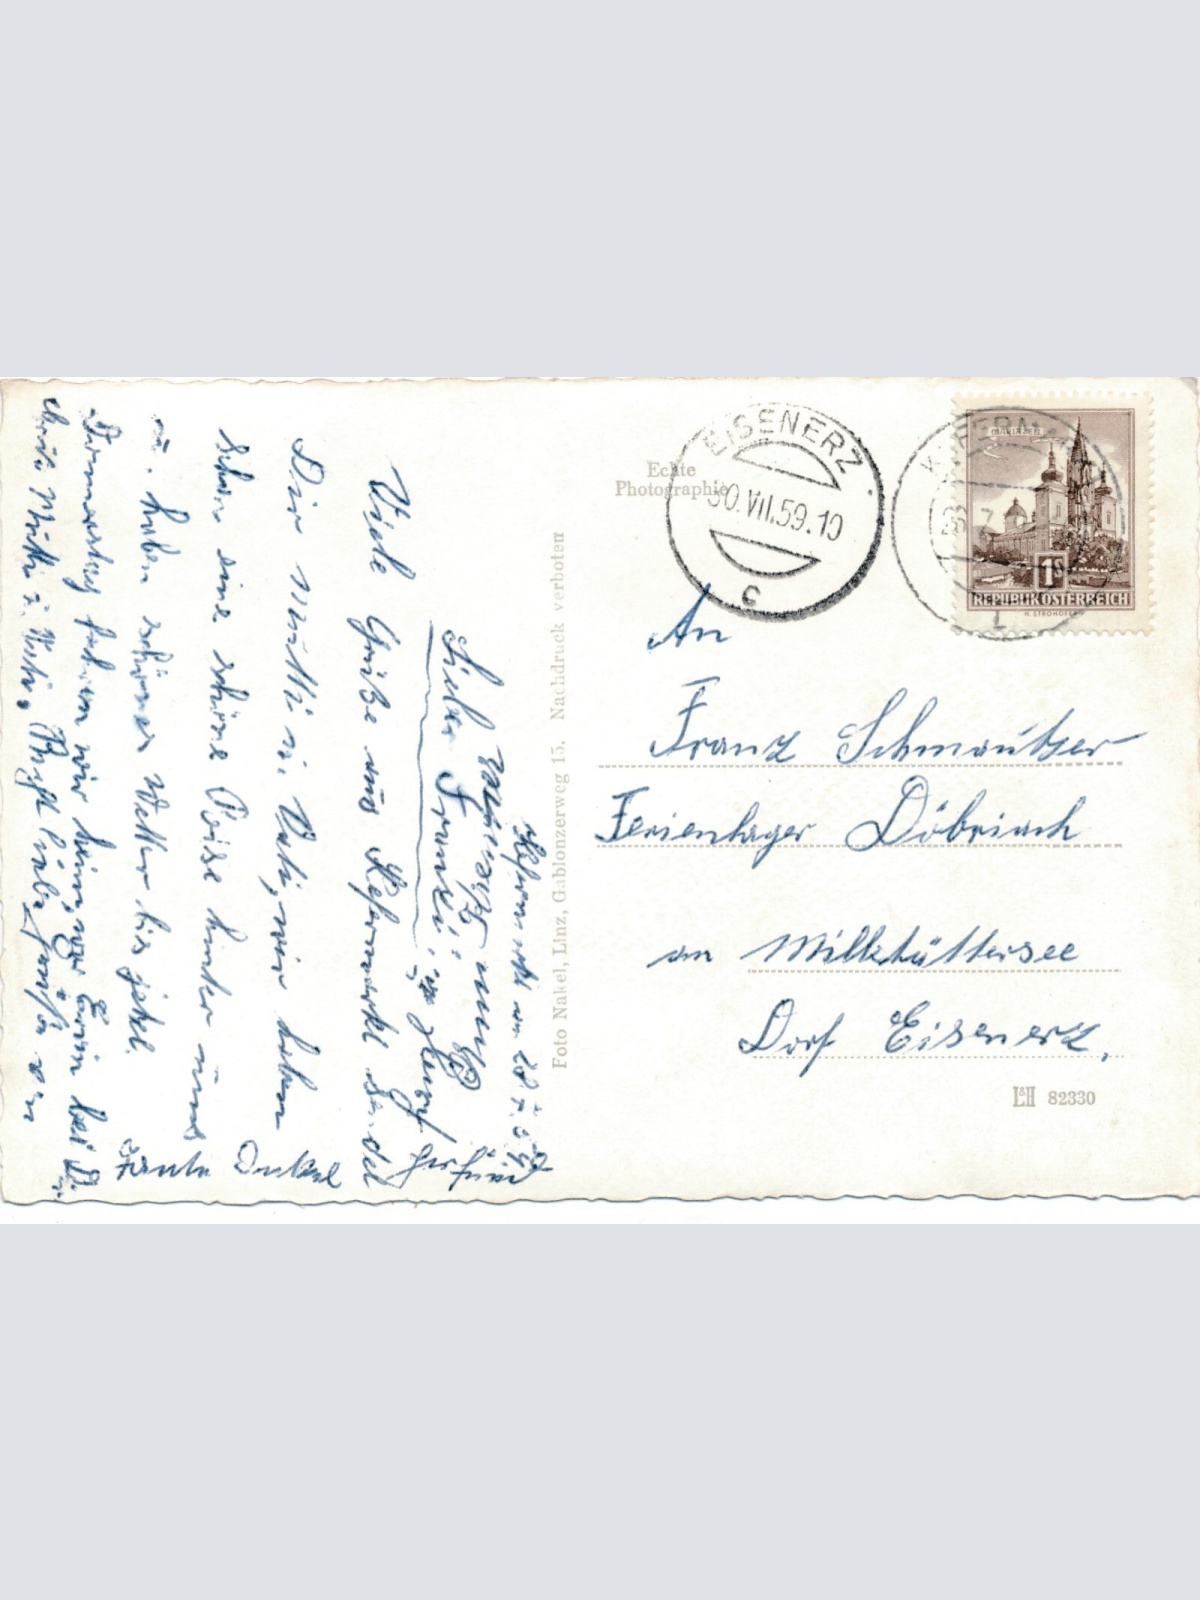 Kefermarkt am 28.7.59
Lieber Franzi!
Viele Grüße aus Kefermarkt sendet
Dir Mutti u. Vati, wir haben
schon eine schöne Reise hinter uns
u. haben schönes Wetter bis jetzt.
Donnerstag fahren wir heim, war Erwin bei D.
Mutti u. Vati, Recht liebe Grüße von
Tante Onkel
Echte
Photographie
Foto Nakel, Linz, Gablonzerweg 15. Nachdruck verboten
EISENERZ
30.VII.59.10
c
MARIAZELL
1S
REPUBLIK ÖSTERREICH
H. STROHOFER
An
Franz Schmautzer
Ferienlager Döbriach
am Millstättersee
Dorf Eisenerz,
L&H 82330